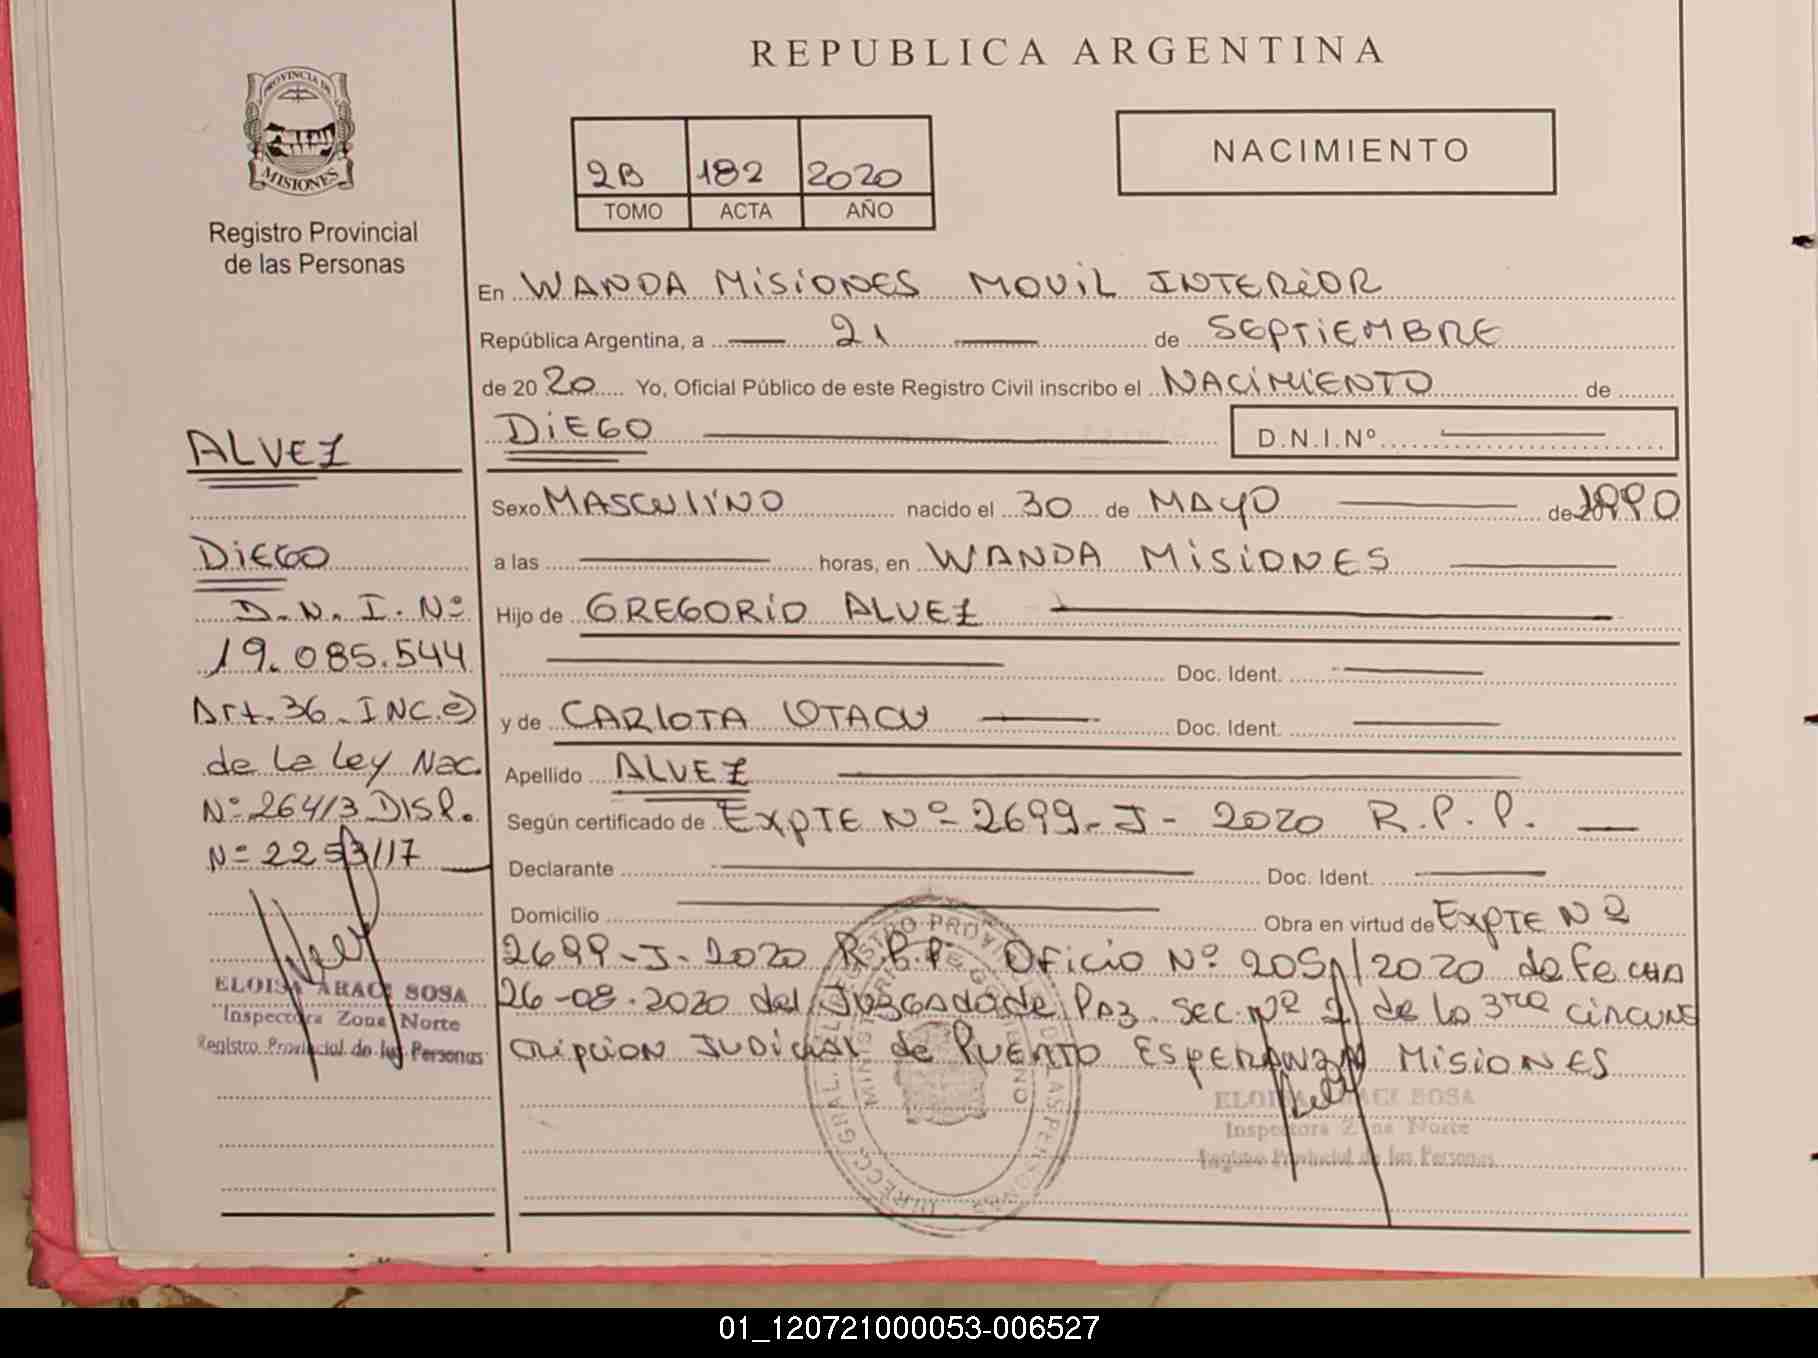 REPUBLICA ARGENTINA
PROVINCIA DE
MISIONES
Registro Provincial
de las Personas
2B 182 2020
TOMO ACTA AÑO
NACIMIENTO
En WANDA MISIONES MOVIL INTERIOR
República Argentina, a 21 de SEPTIEMBRE
de 20 20 Yo, Oficial Público de este Registro Civil inscribo el NACIMIENTO de
DIEGO D.N.I.Nº
Sexo MASCULINO nacido el 30 de MAYO de 1990
a las horas, en WANDA MISIONES
Hijo de GREGORIO ALVEZ
Doc. Ident.
y de CARLOTA OTACU Doc. Ident.
Apellido ALVEZ
Según certificado de EXPTE Nº 2699-J-2020 R.P.P.
Declarante Doc. Ident.
Domicilio Obra en virtud de EXPTE Nº
2699-J-2020 R.P.P. OFICIO Nº 2051/2020 de FECHA
26-08-2020 del Juzgado de Paz Sec. Nº 2 de la 3ra CIRCUNS
CRIPCION JUDICIAL de PUERTO ESPERANZA MISIONES
ELOISA ARACI SOSA
Inspectora Zona Norte
Registro Provincial de las Personas
ALVEZ
DIEGO
D.N.I. Nº
19.085.544
Art. 36 INC. e)
de la Ley Nac.
Nº 26413 DISP.
Nº 2253/17
ELOISA ARACI SOSA
Inspectora Zona Norte
Registro Provincial de las Personas
01_120721000053-006527